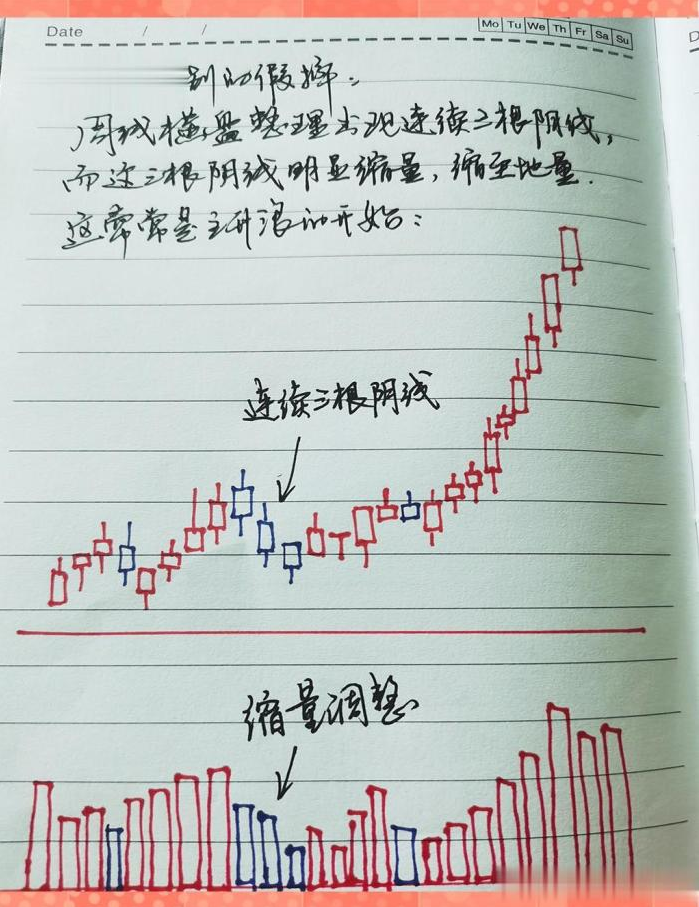 Date / /
Mo Tu We Th Fr Sa Su
D
别的假摔:
周线横盘整理出现连续三根阴线,
而这三根阴线明显缩量,缩至地量.
这常常是主升浪的开始:
连续三根阴线
缩量调整